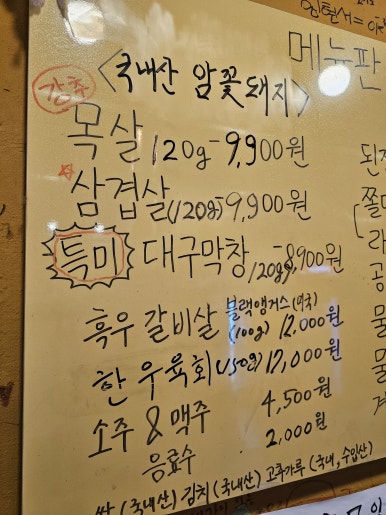 메뉴판
강추
<국내산 암꽃돼지>
목살 120g-9,900원
삼겹살(120g)-9,900원
특미 대구막창 120g-8,900원
흑우 갈비살 블랙앵거스(미국) (100g) 12,000원
한우육회(150g) 12,000원
소주 & 맥주 4,500원
음료수 2,000원
쌀(국내산) 김치(국내산) 고추가루(국내, 수입산)